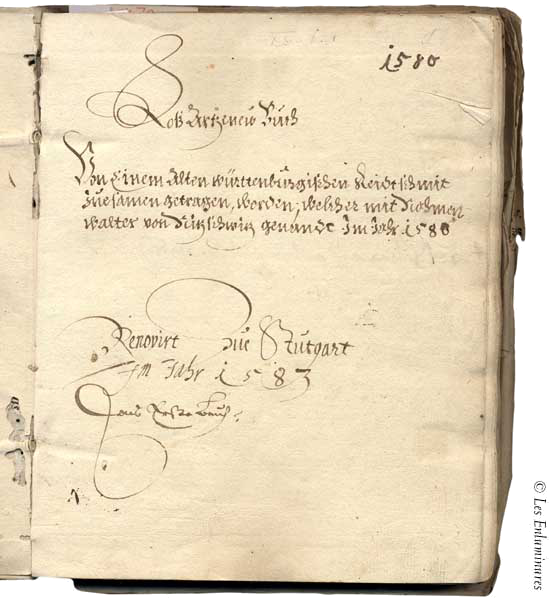 1580
Roß Artzeney Buch
Von Einem Alten württenburgischen Reidtschmit
zue samen getragen, worden, welcher mit Nohmen
walter von Nitzschwitz genandt Im Jahr 1580
Renovirt zue Stutgart
Im Jahr 1583
Das Erste Buch
© Les Enluminures